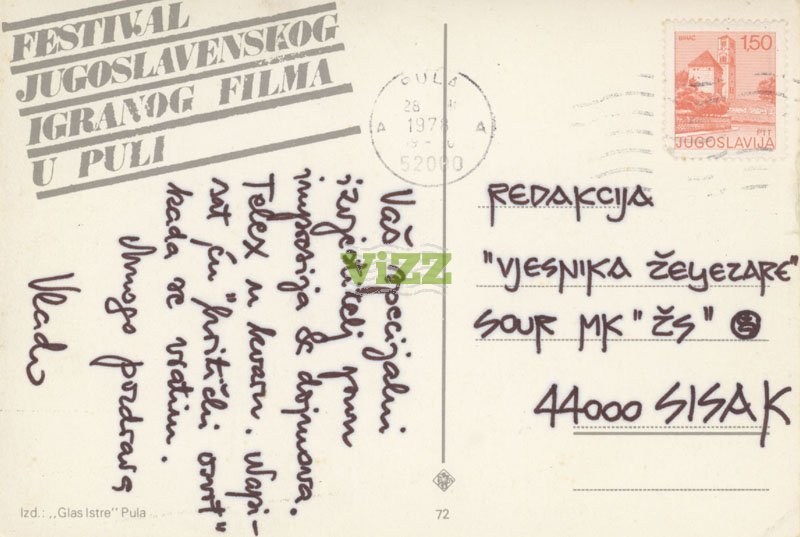 FESTIVAL
JUGOSLAVENSKOG
IGRANOG FILMA
U PULI
PULA
28
1978
A A
52000
BIHAĆ 1,50
PTT
JUGOSLAVIJA
Vaš specijalni
izvjestitelj pun
impresija & dojmova.
Telex u kvaru. Napi-
sat ću "kritički osvrt"
kada se vratim.
Mnogo pozdrava
Vlado
REDAKCIJA
"VJESNIKA ŽELJEZARE"
SOUR MK "ŽS"
44000 SISAK
ViZZ
Izd.: „Glas Istre" Pula
72